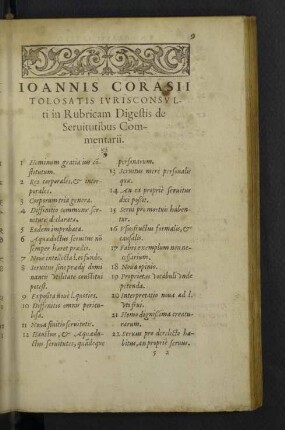 9
IOANNIS CORASII
TOLOSATIS IVRISCONSVL-
ti in Rubricam Digestis de
Seruitutibus Com-
mentarii.
1 Hominum gratia ius
stitutum.
2 Res corporales, & incor-
porales.
3 Corporum tria genera.
4 Diffinitio communis ser-
uitutis declarata.
5 Eadem improbata.
6 Aquaeductus seruitus nō
semper haeret praedijs.
7 Noua intellectus l. ei fundo,
8 Seruitus sine praedij domi-
nantis vtilitate constitui
potest.
9 Exposita noue l. quoties,
10 Diffinitio omnis pericu-
losa.
11 Noua finitio seruitutis.
12 Haustus, & Aquaedu-
ctus seruitutes,
personarum.
13 Seruitus mere personalis
quae.
14 An ea propriè seruitus
dici possit.
15 Serui pro mortuis haben-
tur.
16 Vsusfructus formalis, &
causalis.
17 Fabri exemplum non ne-
cessarium.
18 Noua opinio.
19 Proprietas vocabuli vnde
petenda.
20 Interpretatio noua ad l.
Vt fru.
21 Homo dignissima creatu-
rarum.
22 Seruus pro derelicto ha-
bitus, an propriè seruus,